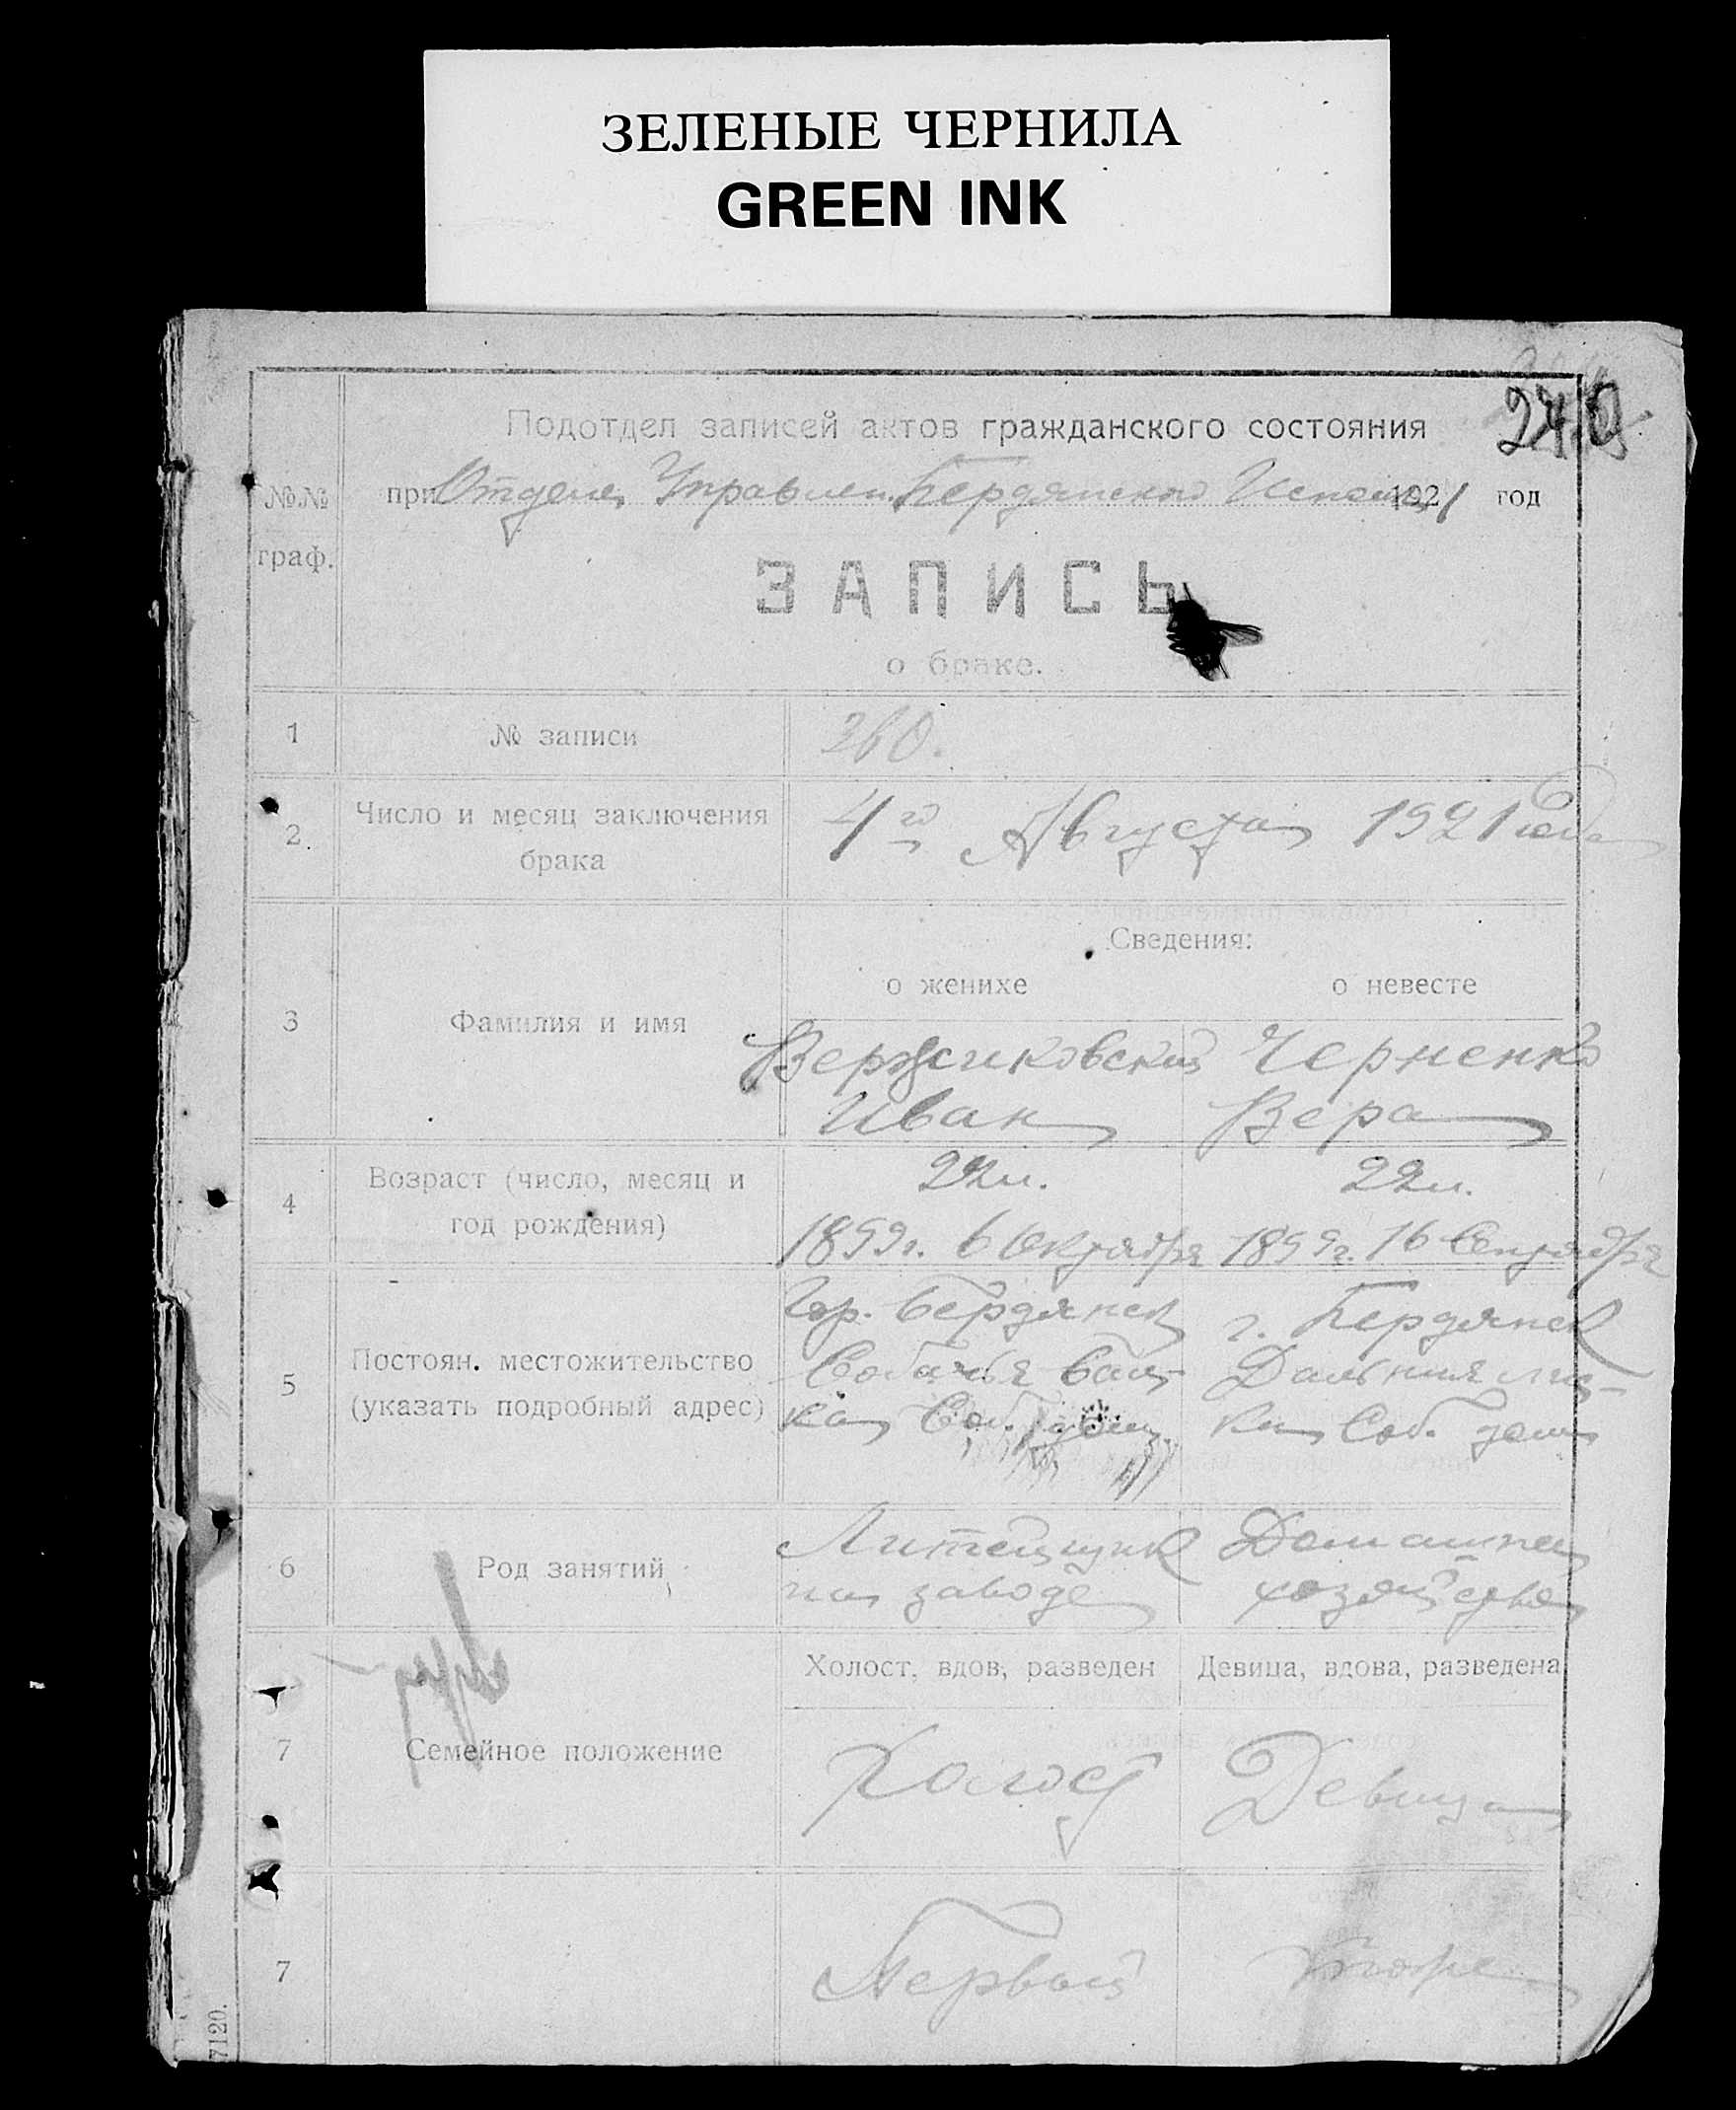 ЗЕЛЕНЫЕ ЧЕРНИЛА
GREEN INK
Подотдел записей актов гражданского состояния
при Отделе Управлен. Бердянского 1921 год
№№ граф.
ЗАПИСЬ
о браке.
1 № записи 260.
2 Число и месяц заключения брака 4го Августа 1921 года
Сведения:
о женихе о невесте
3 Фамилия и имя
Вержиковский Черненко
Иван Вера
4 Возраст (число, месяц и год рождения)
22 л. 22 л.
1899г. 6 Октября 1899г. 16 Сентября
5 Постоян. местожительство (указать подробный адрес)
Гор. Бердянск г. Бердянск
Собачья бал- Дальния
ка Соб. дом. Соб. дом
6 Род занятий
Литейщик Домашнее
на заводе хозяйство
Холост, вдов, разведен Девица, вдова, разведена
7 Семейное положение
Холост Девица
7
Первый
7120.